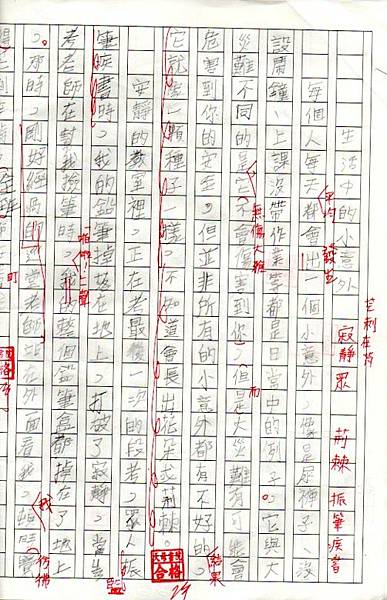 生活中的小意外
每個人每天都會出一個小意外,像是尿褲子、沒
設鬧鐘、上課沒帶作業等都是日常中的例子。它與大
災難不同的是它不會傷害到你,但是大災難有可能會
危害到你的安全。但並非所有的小意外都有不好的。
它就像一顆種子一樣,不知道會長出花朵或荊棘。
安靜的教室裡,正在考最後一次的段考,眾人振
筆疾書時,我的鉛筆掉落在地上,打破了寂靜,當監
考老師在幫我撿筆時,我的整個鉛筆盒都掉在了地上
。那時,剛好經過的 老師站在外面看我,
平均
發生
無傷大雅
而
結果
啪啦!一聲
我
彷彿
寂靜 眾 荊棘 振筆疾書
合格